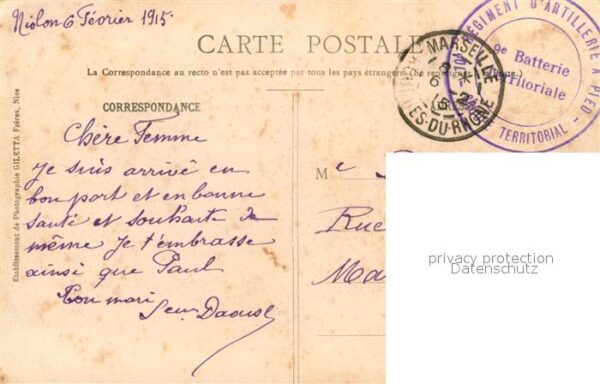 Niolon 6 Février 1915.
CARTE POSTALE
La Correspondance au recto n'est pas acceptée par tous les pays étrangers (Se renseigner à la Poste.)
RÉGIMENT D'ARTILLERIE A PIED
9e Batterie
Territoriale
TERRITORIAL
MARSEILLE
6 - 2
15
BCHES-DU-RHÔNE
CORRESPONDANCE
Chère Femme
Je suis arrivé en
bon port et en bonne
santé et souhaite de
même Je t'embrasse
ainsi que Paul
Ton mari
Daouse
Etablissement de Photographie GILETTA Frères, Nice
Me
Rue
Ma
privacy protection
Datenschutz